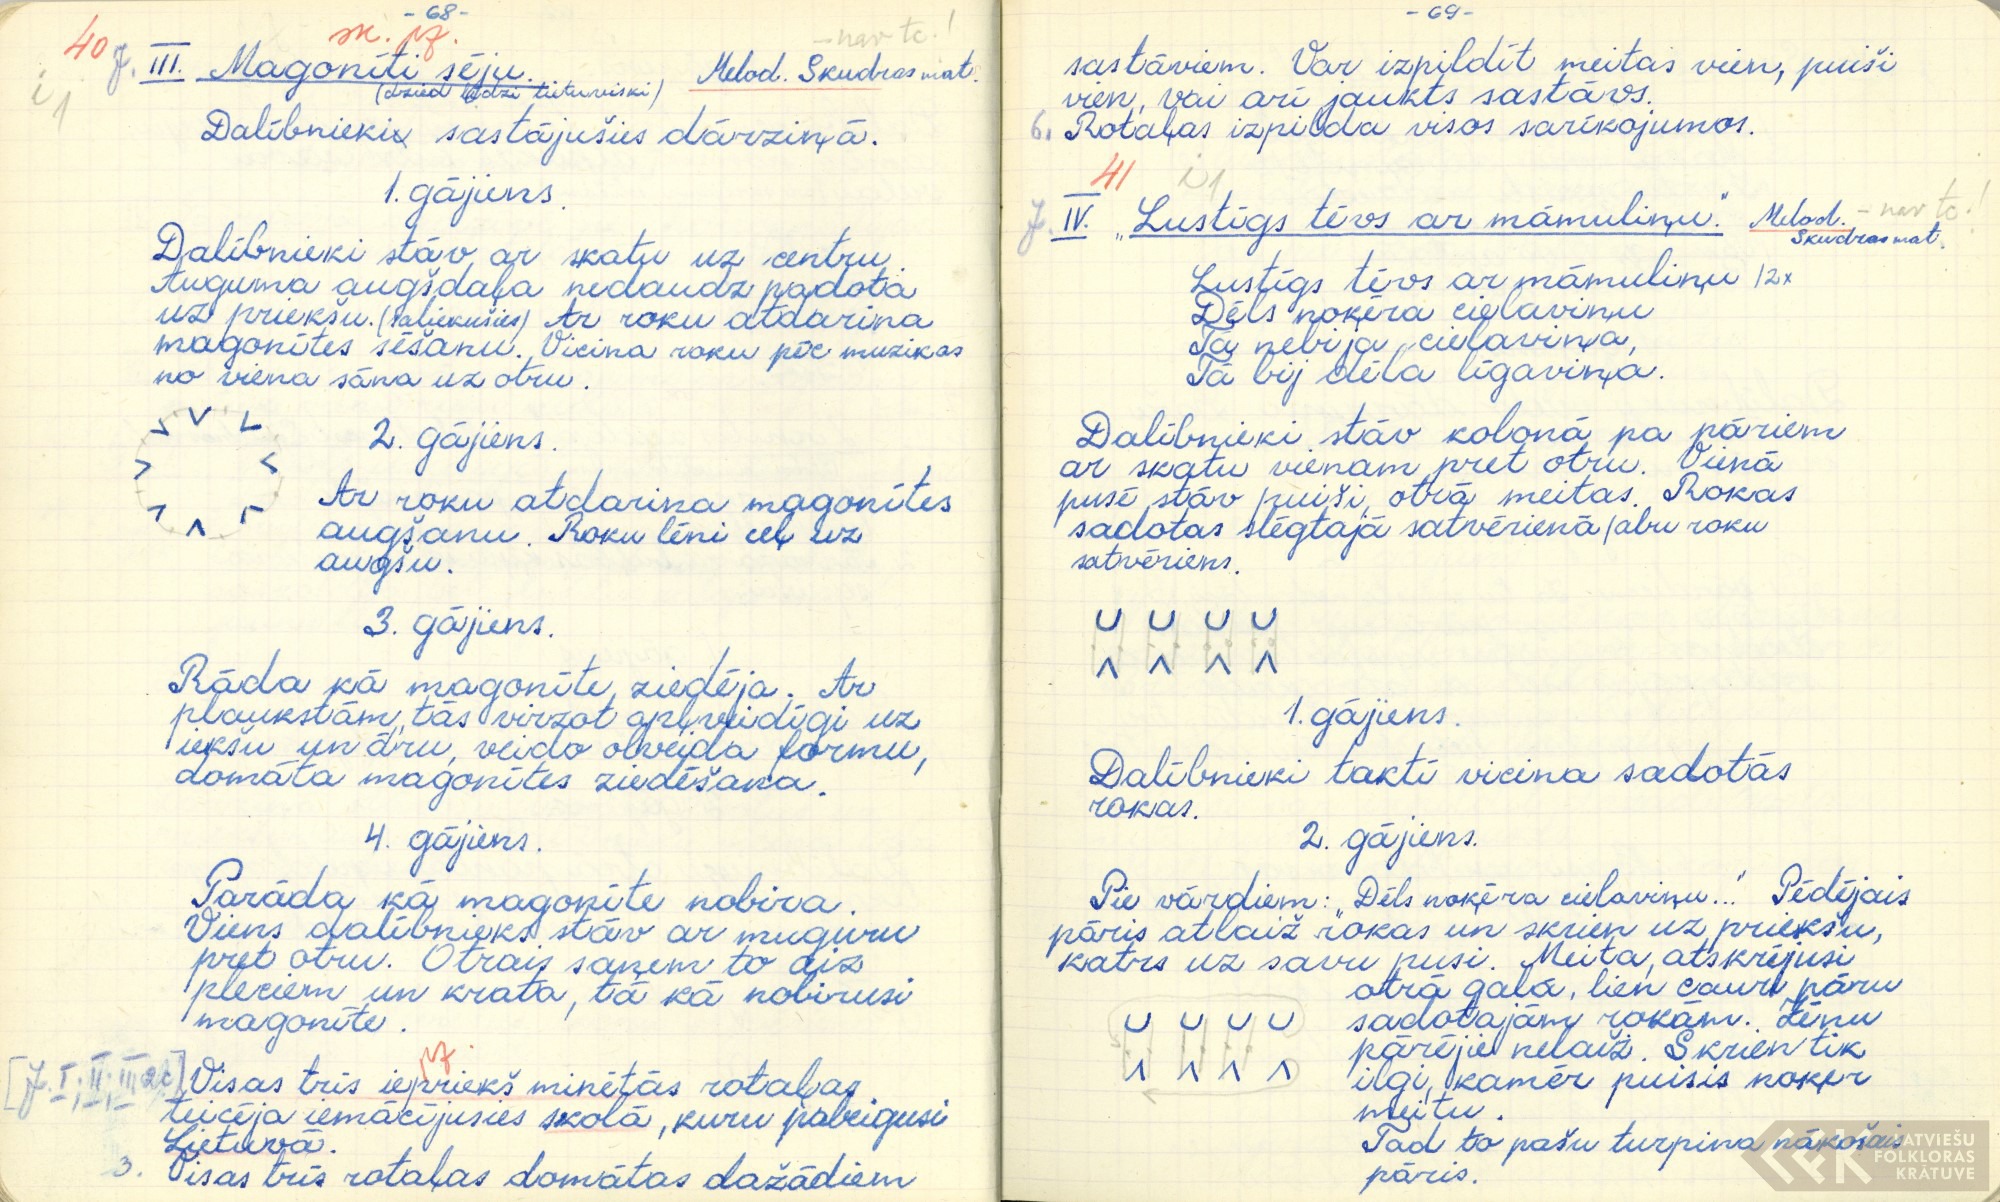 - 68 -
40 sk. pf. - nav tc.!
J. III. Magonīti sēju. Melod. Skudras mat.
i1 (dzied līdzi lietuviski)
Dalībnieki sastājušies dārziņā.
1. gājiens.
Dalībnieki stāv ar skatu uz centru.
Auguma augšdaļa nedaudz padota
uz priekšu. (Paliekušies) Ar roku atdarina
magonītes sēšanu. Vicina roku pēc muzikas
no viena sāna uz otru.
2. gājiens.
Ar roku atdarina magonītes
augšanu. Roku lēni ceļ uz
augšu.
3. gājiens.
Rāda kā magonīte ziedēja. Ar
plaukstām, tās virzot apļveidīgi uz
iekšu un āru, veido olveida formu,
domāta magonītes ziedēšana.
4. gājiens.
Parāda kā magonīte nobira.
Viens dalībnieks stāv ar muguru
pret otru. Otrais saņem to aiz
pleciem un krata, tā kā nobirusi
magonīte.
[J. I, II, III 2c] Visas trīs iepriekš minētās rotaļas
teicēja iemācījusies skolā, kuru pabeigusi
Lietuvā.
3. Visas trīs rotaļas domātas dažādiem
- 69 -
sastāviem. Var izpildīt meitas vien, puiši
vien, vai arī jaukts sastāvs.
6. Rotaļas izpilda visos sarīkojumos.
41 i1
J. IV. „Lustīgs tēvs ar māmuliņu." Melod. - nav tc.!
Skudras mat.
Lustīgs tēvs ar māmuliņu /2x
Dēls noķēra cielaviņu
Tā nebija cielaviņa,
Tā bij dēla līgaviņa.
Dalībnieki stāv kolonā pa pāriem
ar skatu vienam pret otru. Vienā
pusē stāv puiši, otrā meitas. Rokas
sadotas slēgtajā satvērienā /abu roku
satvēriens.
1. gājiens.
Dalībnieki taktī vicina sadotās
rokas.
2. gājiens.
Pie vārdiem: „Dēls noķēra cielaviņu..." Pēdējais
pāris atlaiž rokas un skrien uz priekšu,
katrs uz savu pusi. Meita, atskrējusi
otrā galā, lien cauri pāru
sadotajām rokām. Zēnu
pārējie nelaiž. Skrien tik
ilgi, kamēr puisis noķer
meitu.
Tad to pašu turpina nākošais
pāris.
LFK LATVIEŠU
FOLKLORAS
KRĀTUVE